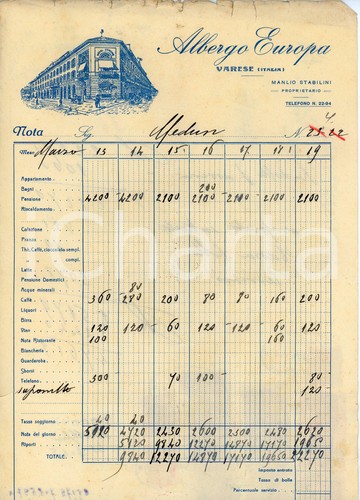 Albergo Europa
VARESE (ITALIA)
MANLIO STABILINI
PROPRIETARIO
TELEFONO N. 22-84
Nota Sig. Medun N. 25-22 4
Mese Marzo 13 14 15 16 17 18 19
Appartamento
Bagni 200
Pensione 4200 4200 2100 2100 2100 2100 2100
Riscaldamento
Colazione
Pranzo
Thè, Caffè, cioccolata sempl.
compl.
Latte
Pensione Domestici
Acque minerali 80
Caffè 360 280 200 80 80 160 200
Liquori
Birra
Vino 120 120 60 120 120 60 120
Nota Ristorante 100 160
Biancheria
Guardaroba
Sborsi
Telefono 300 70 100 80
120
Tassa soggiorno 40 40
Nota del giorno 5120 4720 2430 2600 2300 2480 2620
Riporti 5120 9840 12270 14870 17170 19650
TOTALE 9840 12270 14870 17170 19650 22270
Imposta entrata
Tassa di bollo
Percentuale servizio
Charta